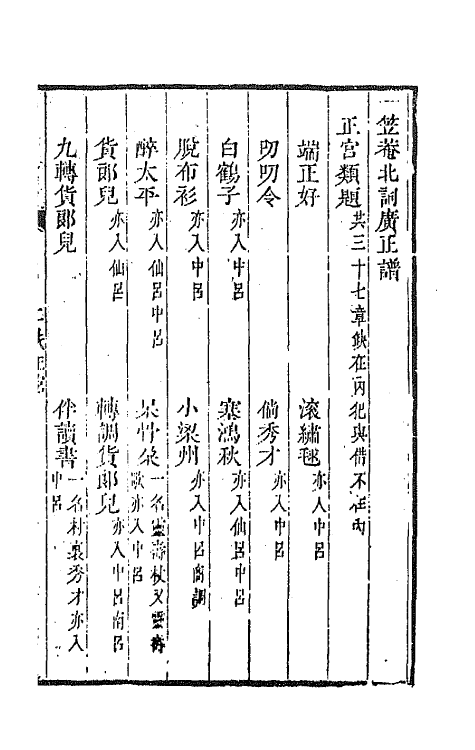 一笠菴北詞廣正譜
正宮類題 共三十七章缺在內犯與借不在內
端正好 滾繡毬 亦入中呂
叨叨令 倘秀才 亦入中呂
白鶴子 亦入中呂 塞鴻秋 亦入仙呂中呂
脫布衫 亦入中呂 小梁州 亦入中呂商調
醉太平 亦入仙呂中呂 呆骨朵 一名靈壽杖又靈壽歌亦入中呂
貨郎兒 亦入仙呂 轉調貨郎兒 亦入中呂南呂
九轉貨郎兒 伴讀書 一名村裏秀才亦入中呂